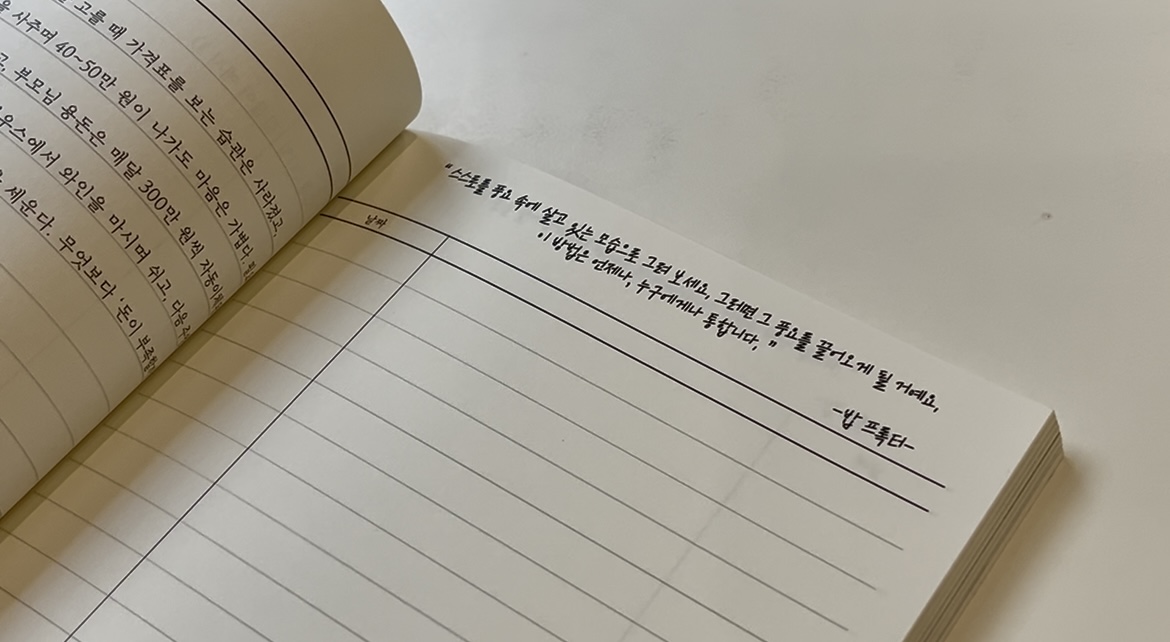 고를 때 가격표를 보는 습관은 사라졌고,
사주며 40~50만 원이 나가도 마음은 가볍다.
부모님 용돈은 매달 300만 원씩
에서 와인을 마시며 쉬고, 다음
세운다. 무엇보다 '돈이
"스스로를 풍요 속에 살고 있는 모습으로 그려 보세요, 그러면 그 풍요를 끌어오게 될 거예요,
이 방법은 언제나, 누구에게나 통합니다."
-밥 프록터-
날짜